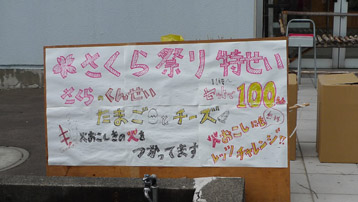 米さくら祭り特せい
さくらのくんせい
100
たまごとチーズ
火おこしきの火を
つかってます
火おこしにも
レッツチャレンジ!!